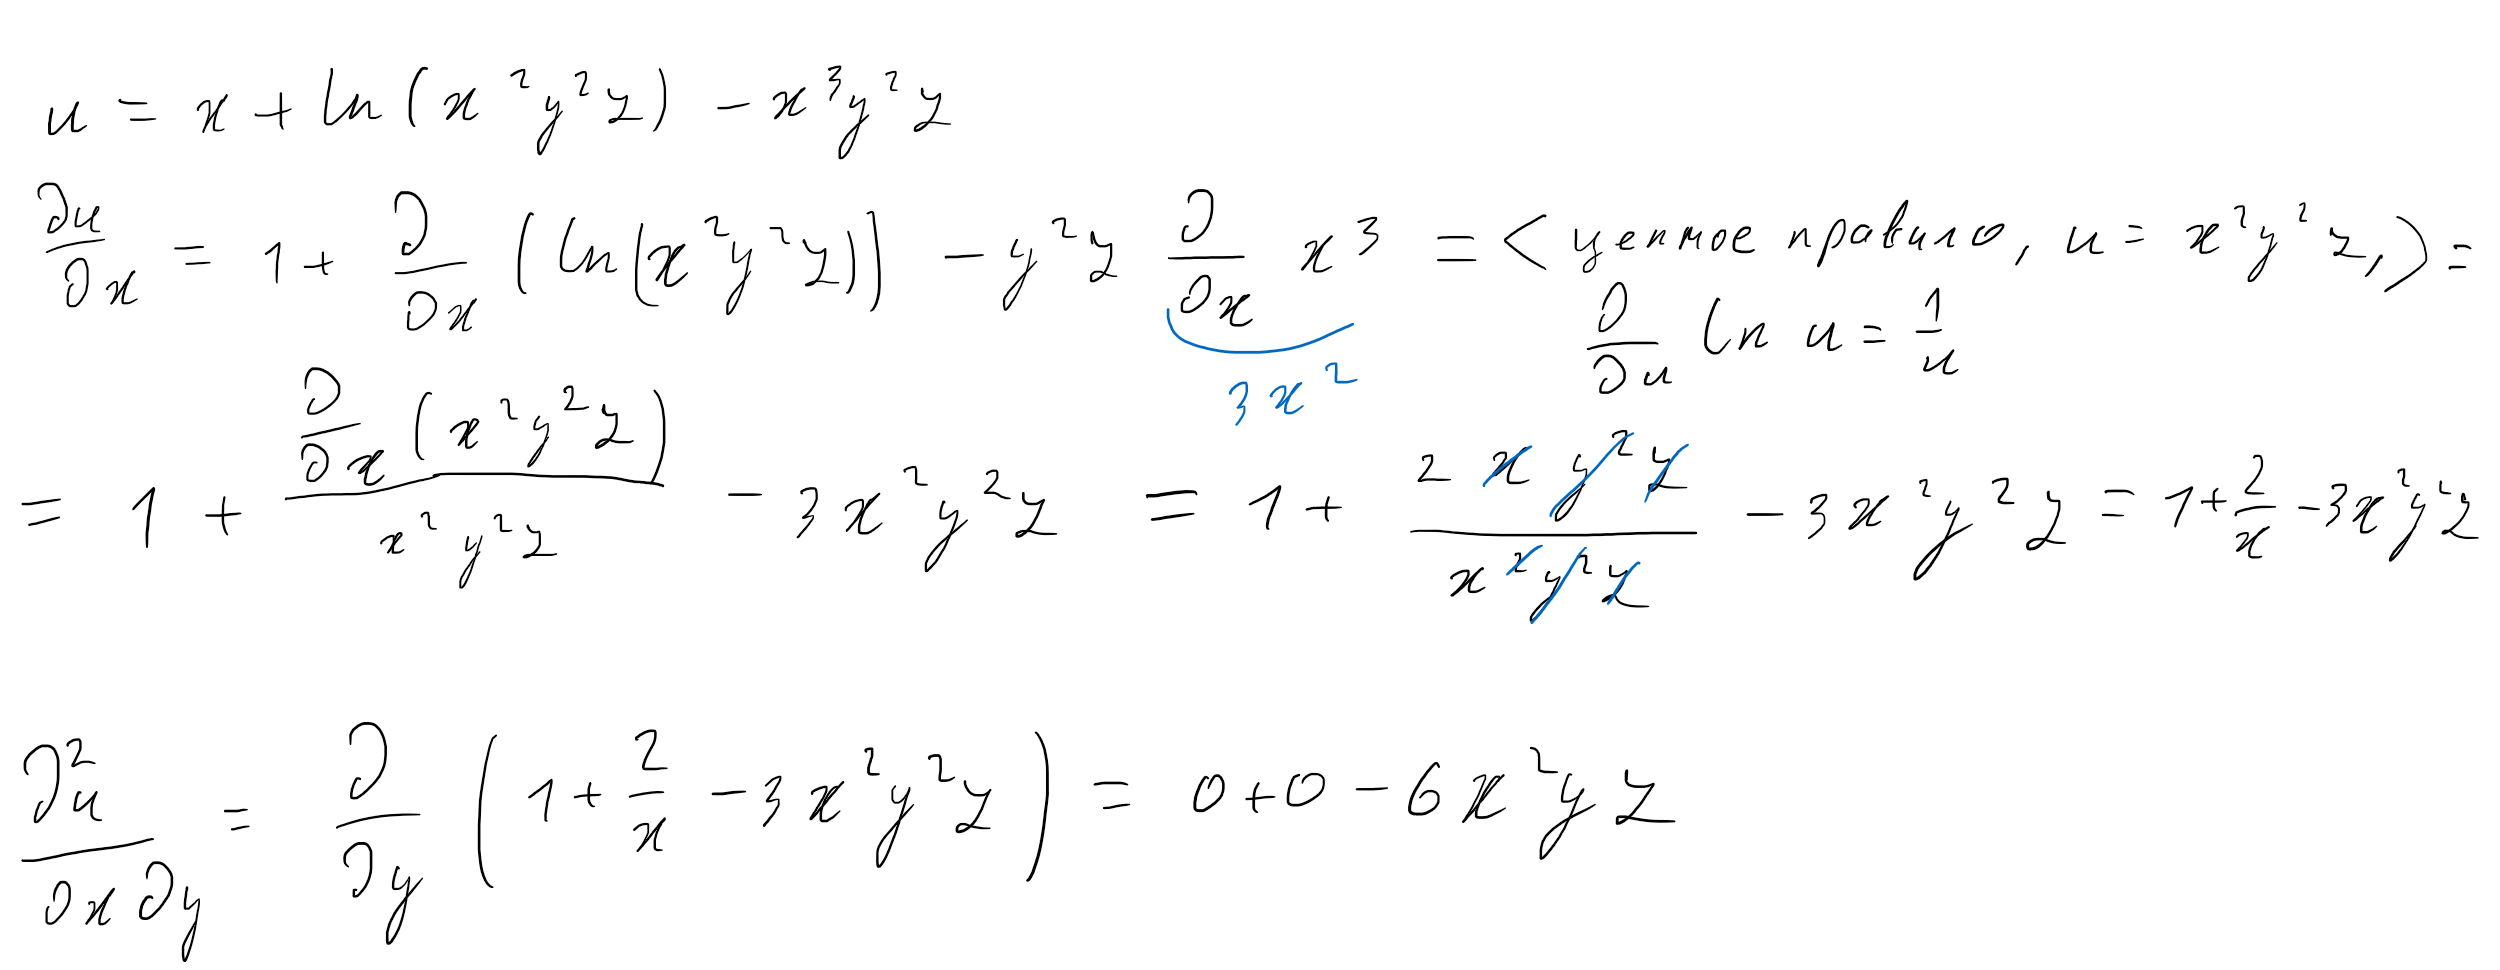 u = x + ln(x²y²z) - x³y²z
∂u/∂x = 1 + ∂/∂x (ln(x²y²z)) - y²z ∂/∂x x³ = <цепное правило, u = x²y²z,> =
3x² ∂/∂u ln u = 1/u
= 1 + ∂/∂x (x²y²z) / x²y²z - 3x²y²z = 1 + 2xy²z / x²y²z - 3x²y²z = 1 + 2/x - 3x²y²z
∂²u/∂x∂y = ∂/∂y (1 + 2/x - 3x²y²z) = 0 + 0 - 6x²yz